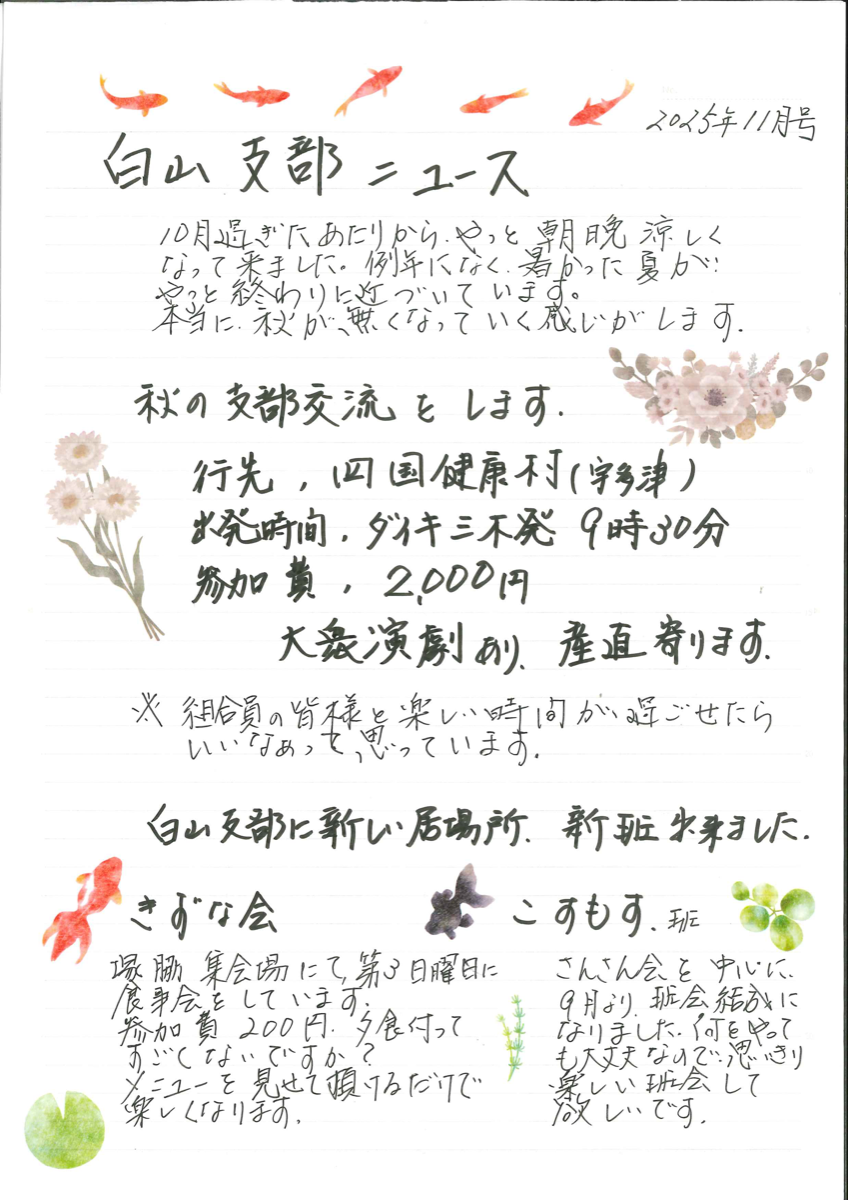 2025年11月号
白山支部ニュース
10月過ぎたあたりから、やっと朝晩涼しく
なって来ました。例年になく、暑かった夏が、
やっと終わりに近づいています。
本当に、秋が、無くなっていく感じがします。
秋の支部交流をします。
行先、四国健康村(宇多津)
出発時間、ダイキ三木発 9時30分
参加費、2,000円
大衆演劇あり、産直寄ります。
※組合員の皆様と楽しい時間が、過ごせたら
いいなあって、思っています。
白山支部に新しい居場所、新班出来ました。
きずな会
塚脇集会場にて、第3日曜日に
食事会をしています。
参加費200円、夕食付って
すごくないですか?
メニューを見せて頂けるだけで
楽しくなります。
こすもす、班
さんさん会を中心に、
9月より、班会結成に
なりました。何をやって
も大丈夫なので、思いきり
楽しい班会して
欲しいです。